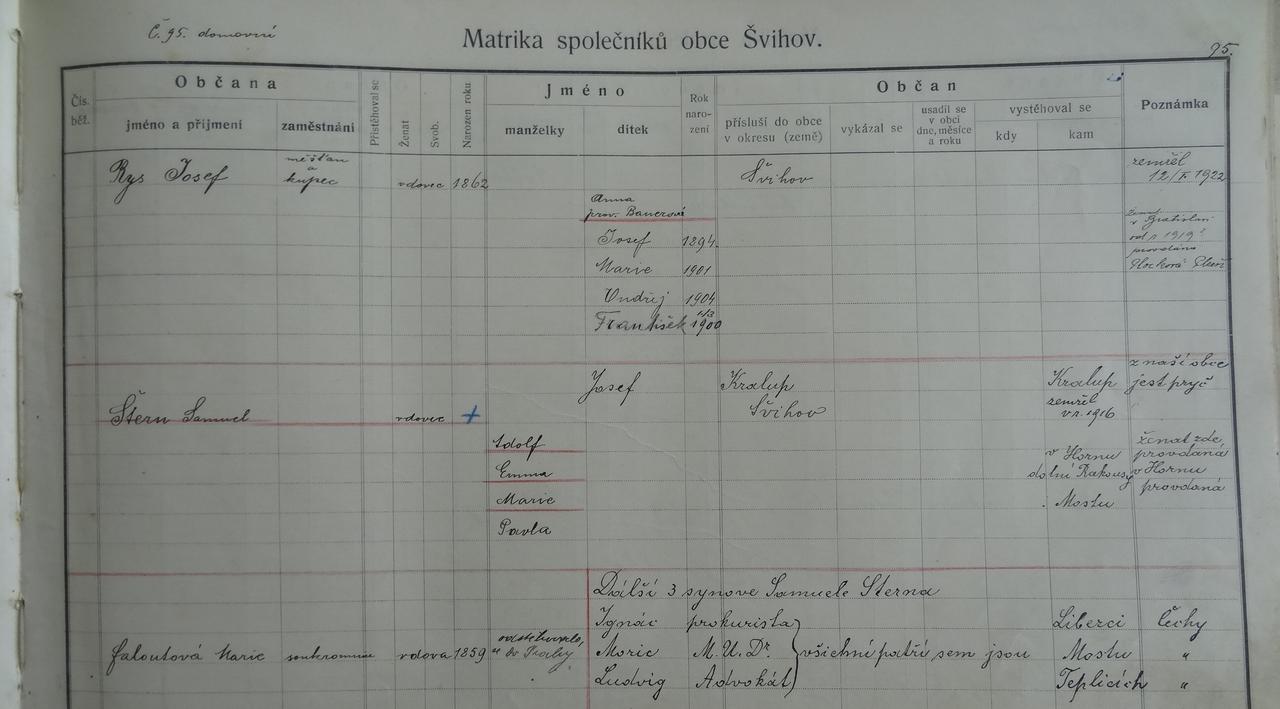 Č. 95. domovní
Matrika společníků obce Švihov.
95.
Čís. běž.
Občana
jméno a příjmení
zaměstnání
Přistěhoval se
Ženat
Svob.
Narozen roku
Jméno
manželky
dítek
Rok naro- zení
Občan
přísluší do obce v okresu (země)
vykázal se
usadil se v obci dne, měsíce a roku
vystěhoval se
kdy
kam
Poznámka
Rys Josef měšťan a kupec vdovec 1862 Švihov zemřel 12/X 1922
Anna
prov. Bauerová
v Bratislavě
Josef 1894.
od r. 1919
provdána
Marie 1901
Ondřej 1904
František 1900
z naší obce
Josef Kralup Kralup jest pryč
Švihov zemřel
Štern Samuel vdovec + v r. 1916
Adolf ženat zde
v Hornu provdaná
Emma dolní Rakousy v Hornu
Marie Mostu provdaná
Pavla
Dálší 3 synove Samuele Sterna
Ignác prokurista Liberci Čechy
Faloutová Marie soukromnice vdova 1859 do Prahy Moric M.U.Dr. všichni patří sem jsou Mostu "
Ludvig Advokát Teplicích "